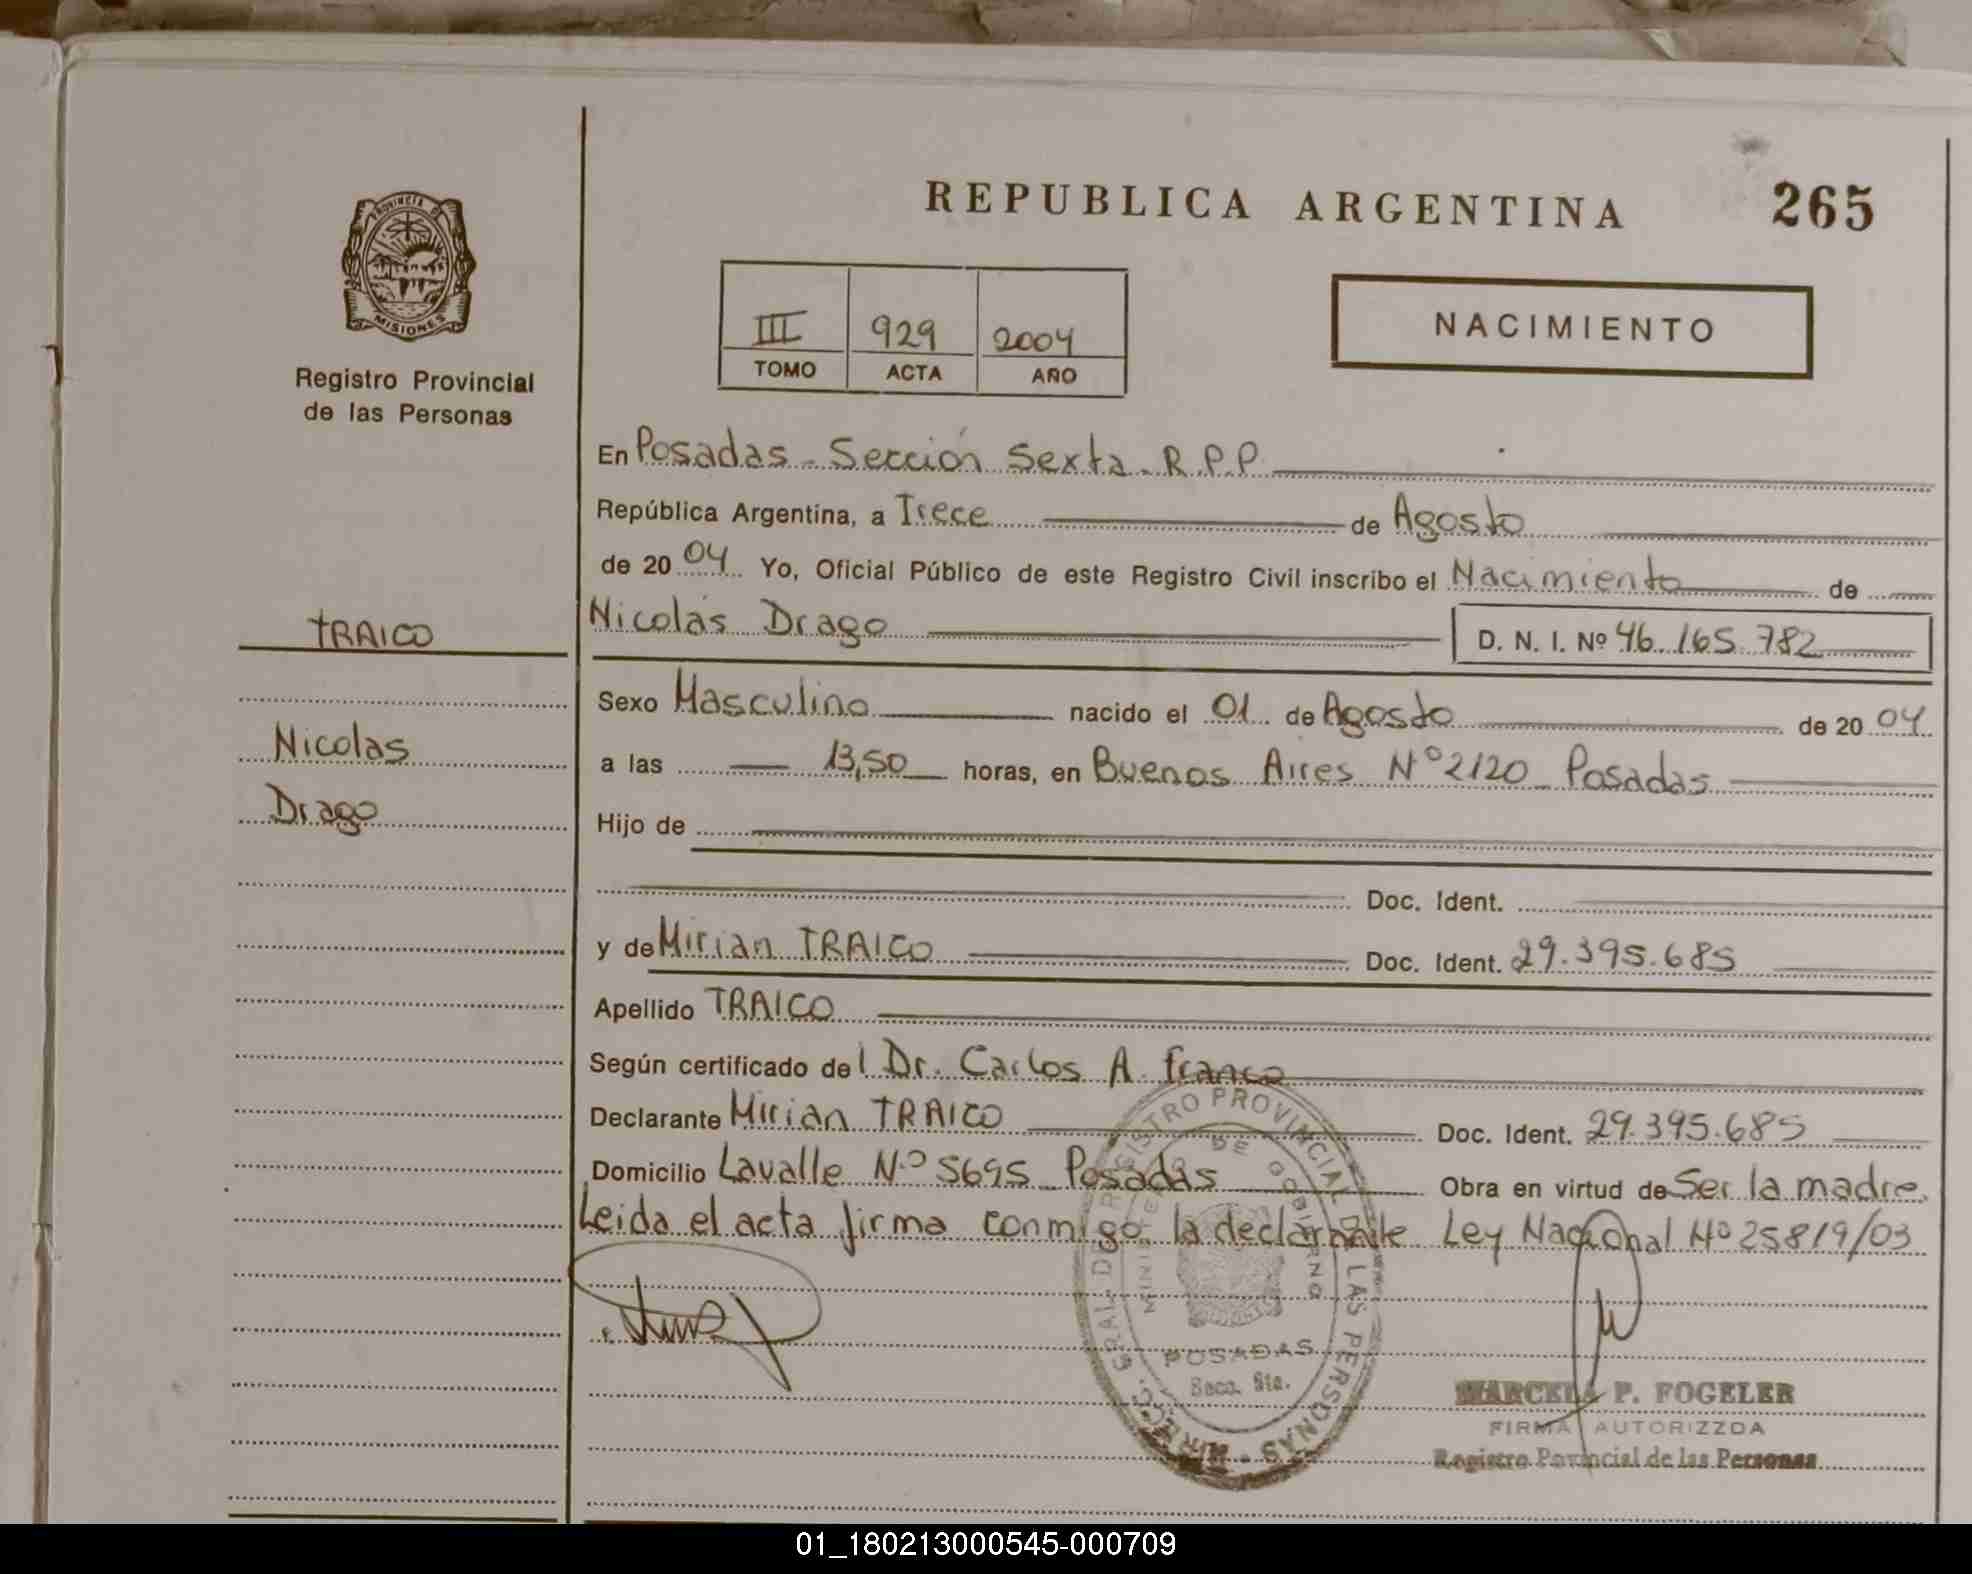 REPUBLICA ARGENTINA
265
PROVINCIA DE
MISIONES
Registro Provincial
de las Personas
III 929 2004
TOMO ACTA AÑO
NACIMIENTO
En Posadas - Sección Sexta - R.P.P.
República Argentina, a Trece de Agosto
de 20 04 Yo, Oficial Público de este Registro Civil inscribo el Nacimiento de
TRAICO
Nicolás Drago
D. N. I. Nº 46.165.782
Sexo Masculino nacido el 01 de Agosto de 20 04
Nicolas
a las 13,50 horas, en Buenos Aires Nº 2120 - Posadas
Drago
Hijo de
Doc. Ident.
y de Mirian TRAICO Doc. Ident. 29.395.685
Apellido TRAICO
Según certificado del Dr. Carlos A. Franco
Declarante Mirian TRAICO Doc. Ident. 29.395.685
Domicilio Lavalle Nº 5695 - Posadas Obra en virtud de Ser la madre.
Leida el acta firma conmigo la declarante Ley Nacional Nº 25819/03
DIRECC. GRAL. DE REGISTRO PROVINCIAL DE LAS PERSONAS
MINISTERIO DE GOBIERNO
POSADAS
Secc. 6ta.
MARCELA P. FOGELER
FIRMA AUTORIZZDA
Registro Provincial de las Personas
01_180213000545-000709